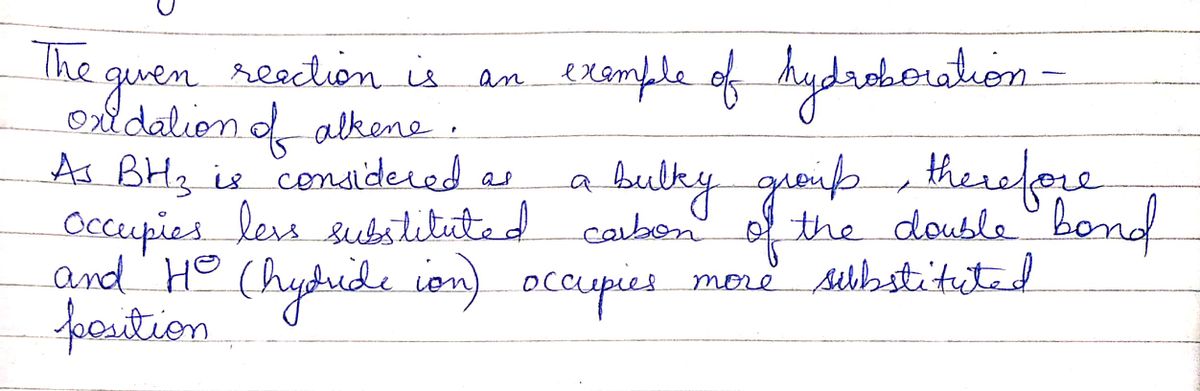 The given reaction is an example of hydroboration -
oxidation of alkene.
As BH₃ is considered as a bulky group, therefore
occupies less substituted carbon of the double bond
and H⊖ (hydride ion) occupies more substituted
position